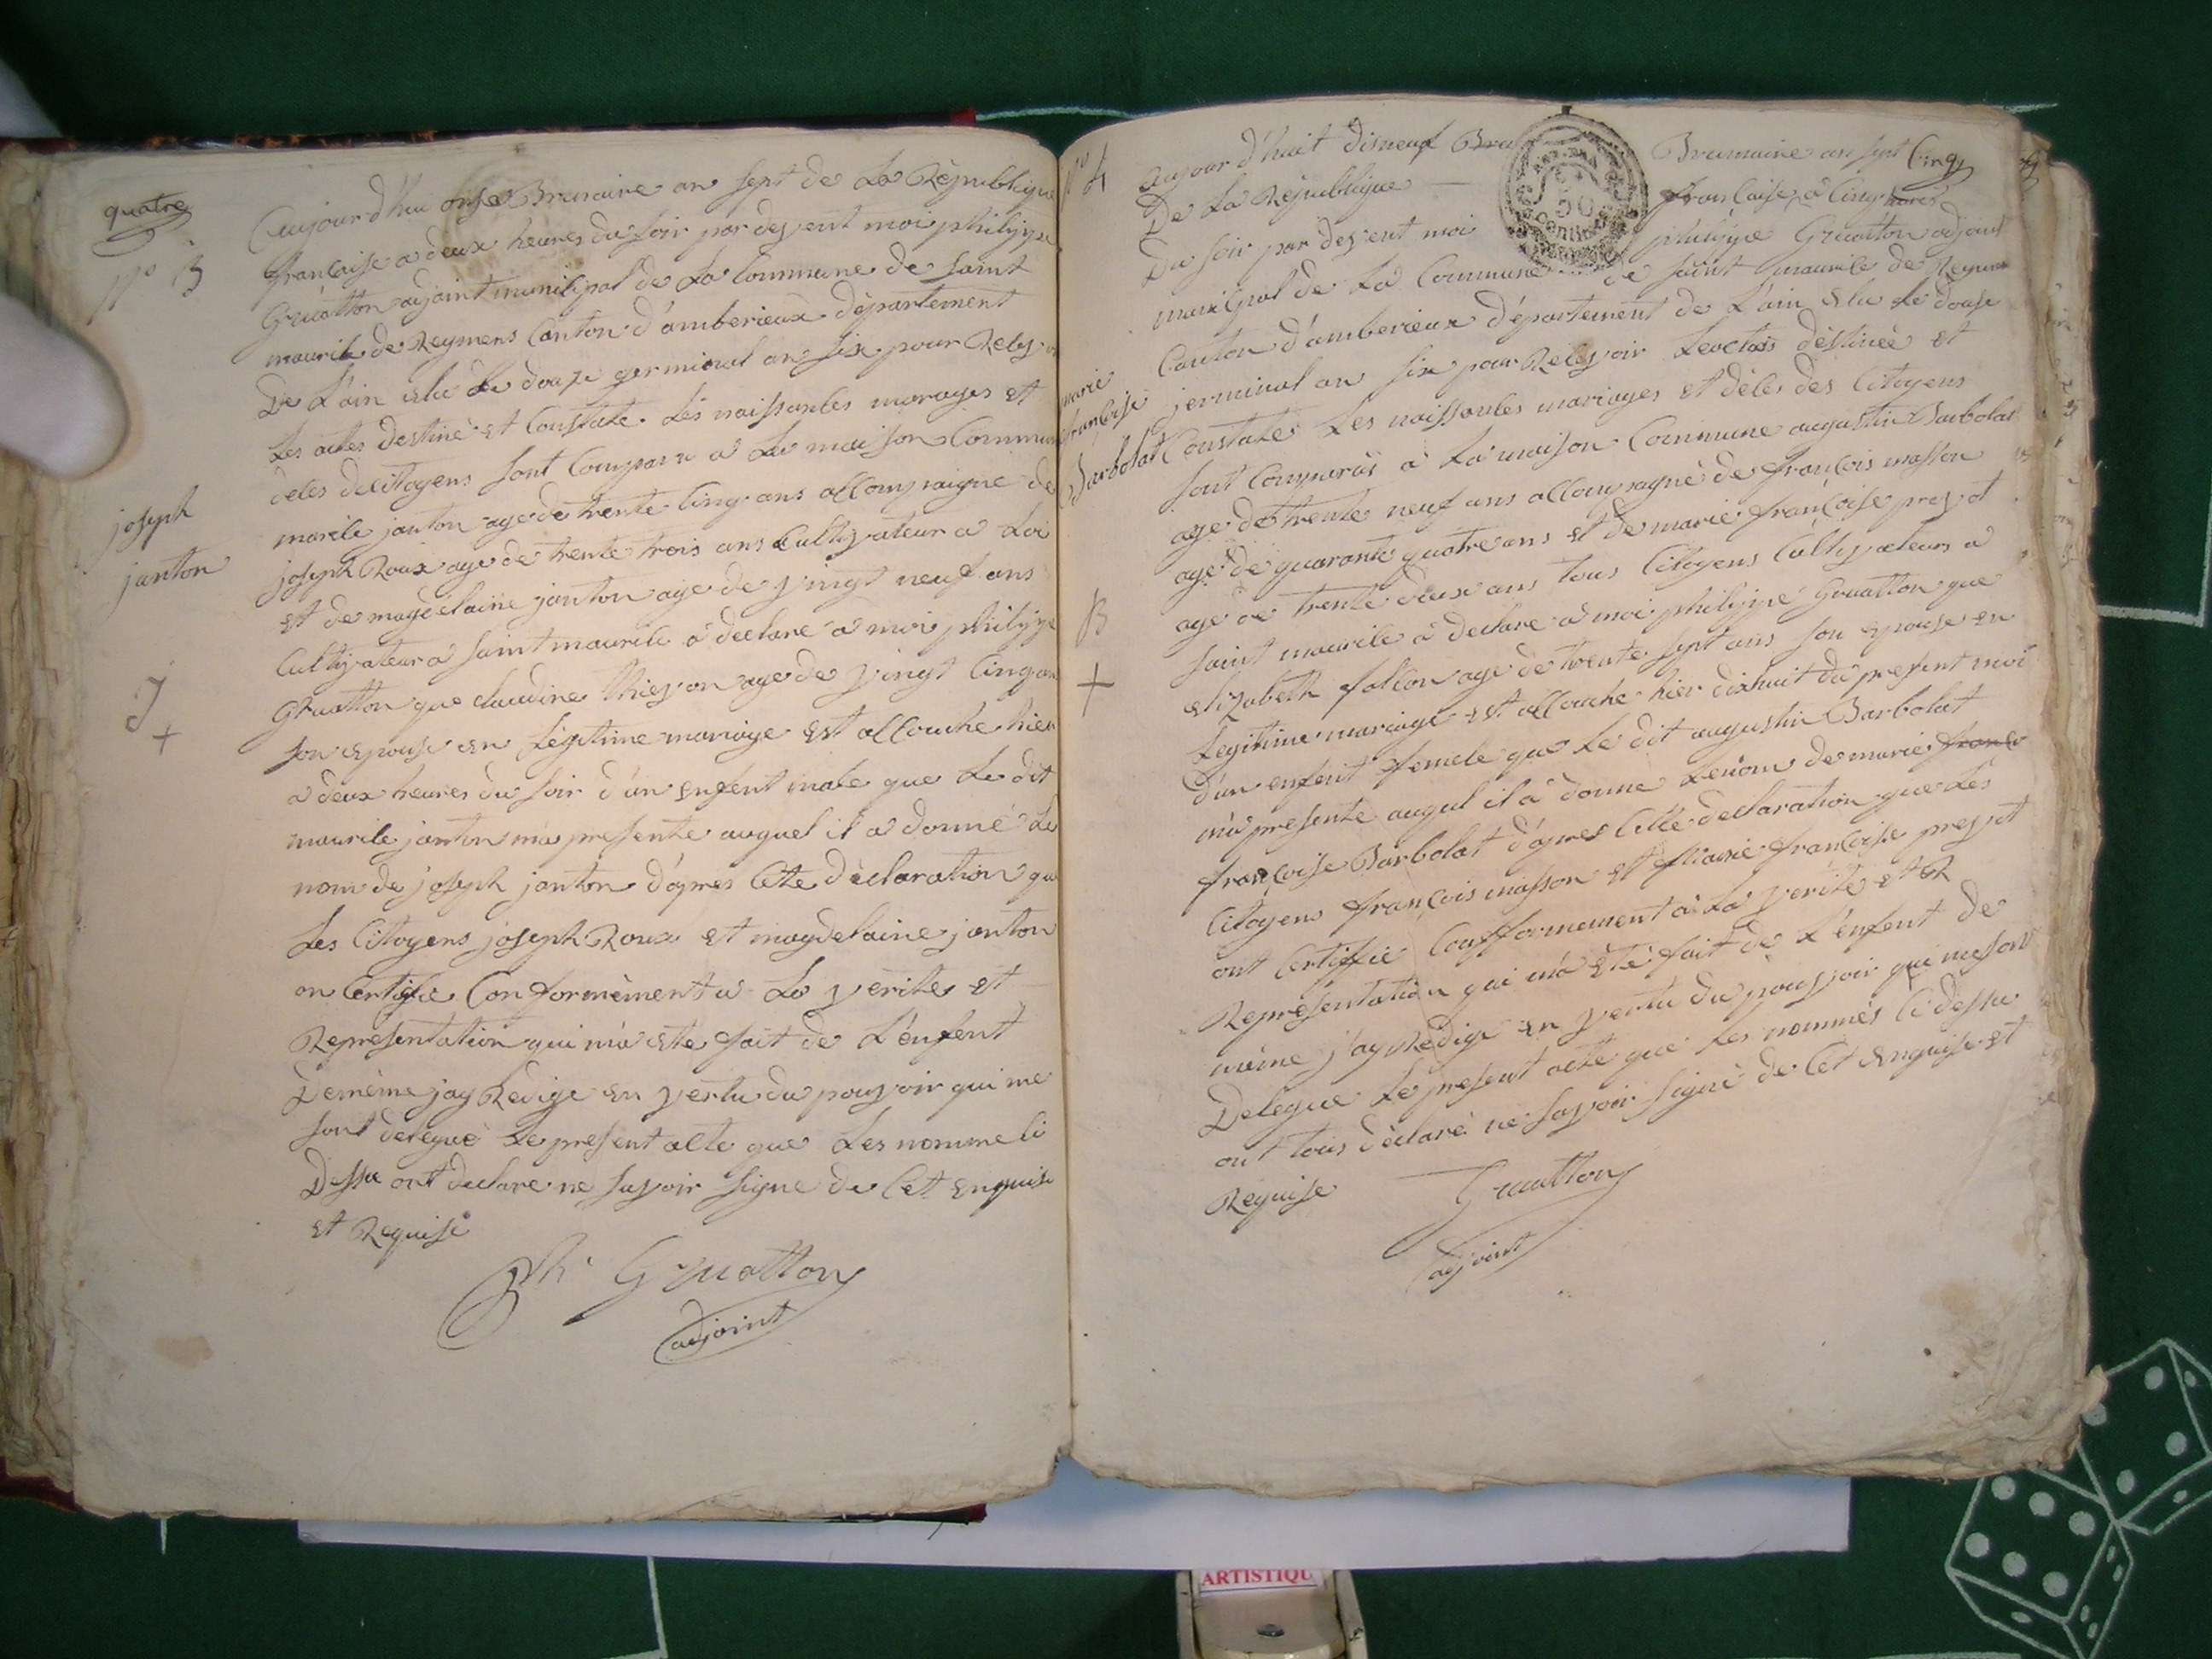 quatre
N° 3
joseph
janton
J
+
Aujourd'hui onse Brumaire an sept de La Republique
française a deux heures du soir par devent moi philippe
Gruatton adjoint municipal de La Commune de saint
maurile de Reymens Canton d'amberieux département
De L'ain elu Le douze germinal an six pour Relev
Les actes destiné et Constaté Les naissanles mariages et
deles deCitoyens sont Comparu a La maison Commun
marile janton age de trente Cinq ans allompaigné de
joseph Roux age de trente trois ans Cultivateur a Loi
et de magdelaine janton age de vingt neuf ans
Cultivateur a saint maurile a declare a moi philippe
Gruatton que claudine thievon age de vingt Cinq an
son epouse en Légitime mariage est allouche hier
a deux heures du soir d'un enfent male que Le dit
maurile janton m'a presente auquel il a donné Le
nom de joseph janton d'apres Cete déclaration que
Les Citoyens joseph Roux et magdelaine janton
on Certifie Conformément a La verites et
Representation qui m'a ete fait de L'enfent
De même jay Redige en vertu du pouvoir qui me
sont delegué Le present alte que Les nomme Ci
Dessu ont declare ne savoir signe de Cet enquise
et Requise
Ph. Gruatton
adjoint
N° 4
marie
françoise
Barbolat
B
+
Cinq
aujourd'huit disneuf Bru Brumaire an sept
De La Republique française, a Cinq hores
Du soir par devent moi philippe Gruatton adjoint
municipal de La Commune de saint maurile de Reyme
Canton d'amberieux département de L'ain elu Le douse
jerminal an six pour Relevoir Les actes destinée et
Constaté Les naissanles mariages et déles des Citoyens
sont Comparus a La maison Commune augustin Barbolat
age de trente neuf ans allompagné de françois masson
age de quarante quatre ans et de marie françoise prevot
age de trente deux ans tous Citoyens Cultivateurs a
saint maurile a declare a moi philippe Gruatton que
elizabeth follon age de trente sept ans son epouse en
Legitime mariage est allouche hier dixhuit du present moi
d'un enfent femele que Le dit augustin Barbolat
m'a presente auquel il a donne Le nom de marie franco
françoise Barbolat d'apres Cette declaration que Les
Citoyens françois masson et Marie françoise prevot
ont Certiffie Confformement a La verité et R
Représentation qui m'a été fait de L'enfent de
même j'ay Redige en vertu du pouvoir qui me son
Delegue Le present acte que Les nommés Ci dessu
ont tous déclaré ne savoir signé de Cet enquise et
Requise
Gruatton
adjoint
50
ARTISTIQU